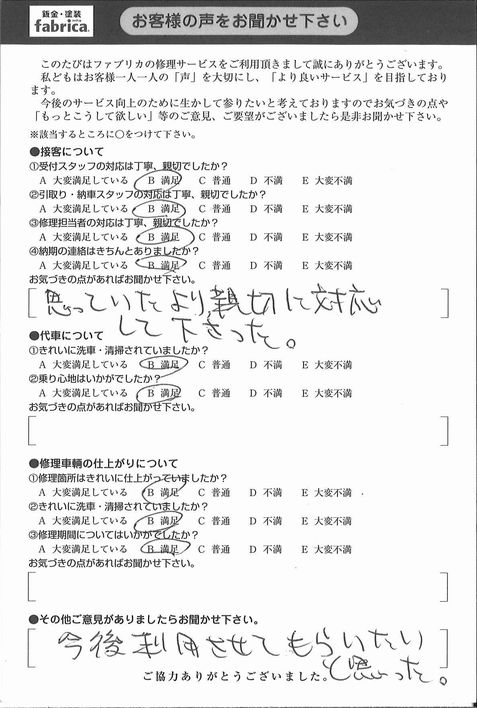 鈑金・塗装
fabrica.
お客様の声をお聞かせ下さい
このたびはファブリカの修理サービスをご利用頂きまして誠にありがとうございます。
私どもはお客様一人一人の「声」を大切にし、「より良いサービス」を目指しており
ます。
今後のサービス向上のために生かして参りたいと考えておりますのでお気づきの点や
「もっとこうして欲しい」等のご意見、ご要望がございましたら是非お聞かせ下さい。
※該当するところに○をつけて下さい。
●接客について
①受付スタッフの対応は丁寧、親切でしたか?
A 大変満足している B 満足 C 普通 D 不満 E 大変不満
②引取り・納車スタッフの対応は丁寧、親切でしたか?
A 大変満足している B 満足 C 普通 D 不満 E 大変不満
③修理担当者の対応は丁寧、親切でしたか?
A 大変満足している B 満足 C 普通 D 不満 E 大変不満
④納期の連絡はきちんとありましたか?
A 大変満足している B 満足 C 普通 D 不満 E 大変不満
お気づきの点があればお聞かせ下さい。
思っていたより、親切に対応
して下さった。
●代車について
①きれいに洗車・清掃されていましたか?
A 大変満足している B 満足 C 普通 D 不満 E 大変不満
②乗り心地はいかがでしたか?
A 大変満足している B 満足 C 普通 D 不満 E 大変不満
お気づきの点があればお聞かせ下さい。
●修理車輌の仕上がりについて
①修理箇所はきれいに仕上がっていましたか?
A 大変満足している B 満足 C 普通 D 不満 E 大変不満
②きれいに洗車・清掃されていましたか?
A 大変満足している B 満足 C 普通 D 不満 E 大変不満
③修理期間についてはいかがでしたか?
A 大変満足している B 満足 C 普通 D 不満 E 大変不満
お気づきの点があればお聞かせ下さい。
●その他ご意見がありましたらお聞かせ下さい。
今後利用させてもらいたい
と思った。
ご協力ありがとうございました。